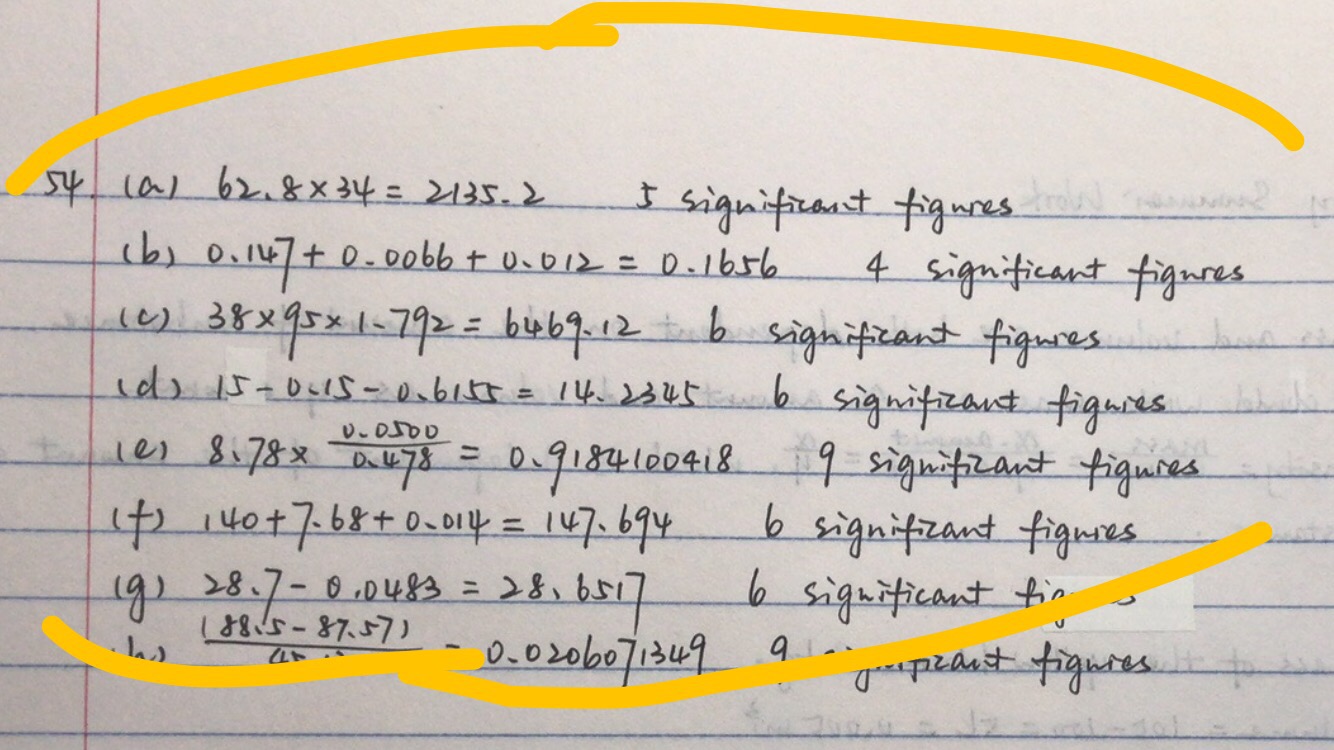 54. (a) 62.8×34 = 2135.2 5 significant figures
(b) 0.147 + 0.0066 + 0.012 = 0.1656 4 significant figures
(c) 38×95×1.792 = 6469.12 6 significant figures
(d) 15 - 0.15 - 0.6155 = 14.2345 6 significant figures
(e) 8.78× 0.0500/0.478 = 0.9184100418 9 significant figures
(f) 140 + 7.68 + 0.014 = 147.694 6 significant figures
(g) 28.7 - 0.0483 = 28.6517 6 significant
(88.5 - 87.57) = 0.0206071349 9 significant figures